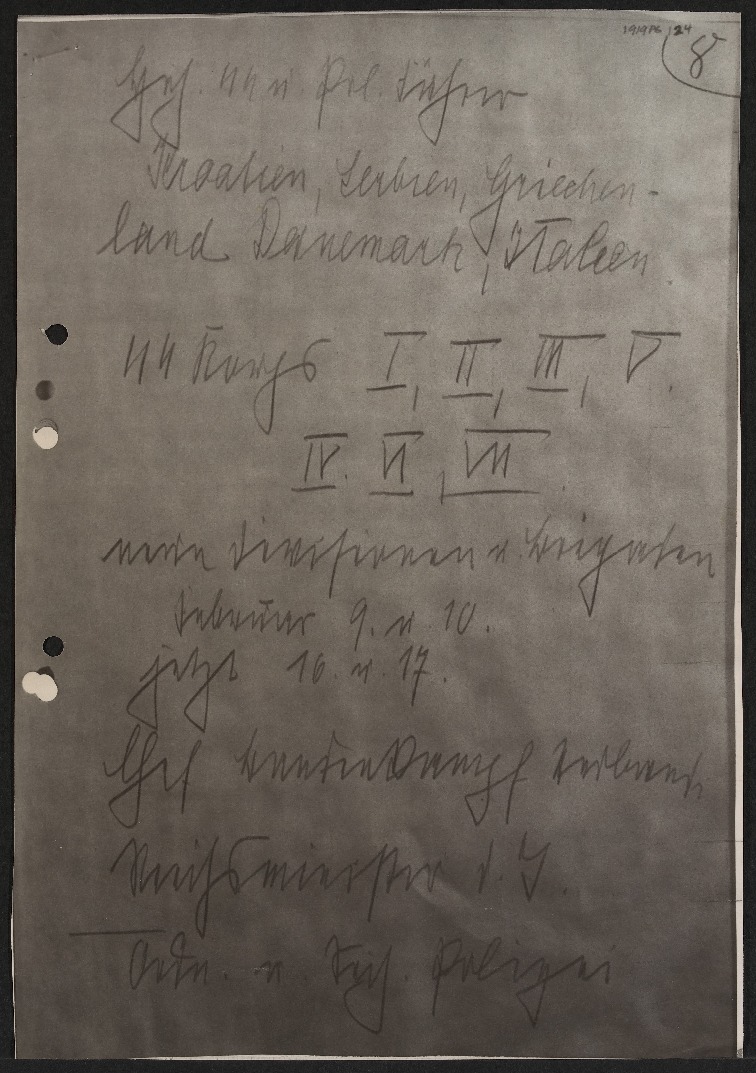 1919PS / 24
8
Höh. SS u. Pol. Führer
Kroatien, Serbien, Griechen-
land Dänemark, Italien.
SS Korps I, II, III, V.
IV. VI, VII.
neun Divisionen u. Brigaden
Februar 9. u. 10.
jetzt 16. u. 17.
Chef Bandenkampf Verbände
Reichsminister d. I.
Ordn. u. Sich. Polizei